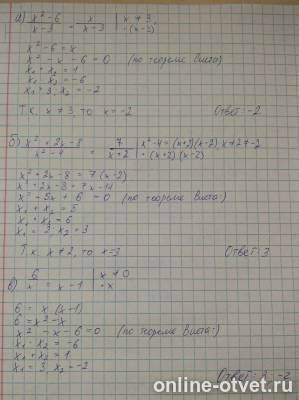 а) x²-6 / x-3 = x / x-3 | x ≠ 3, ·(x-3)
x²-6=x
x²-x-6=0 (по теореме Виета)
x₁+x₂=1
x₁·x₂=-6
x₁=3, x₂=-2
Т.к. x≠3, то x=-2 Ответ: -2
б) x²+2x-8 / x²-4 = 7 / x+2 | x²-4=(x+2)(x-2) x≠2 ≠-2 ·(x+2)(x-2)
x²+2x-8=7(x-2)
x²+2x-8=7x-14
x²-5x+6=0 (по теореме Виета:)
x₁+x₂=5
x₁·x₂=6
x₁=2, x₂=3
Т.к. x≠2, то x=3 Ответ: 3
в) 6 / x = x-1 | x≠0 ·x
6=x(x-1)
6=x²-x
x²-x-6=0 (по теореме Виета:)
x₁·x₂=-6
x₁+x₂=1
x₁=3, x₂=-2
Ответ: -2
online-otvet.ru